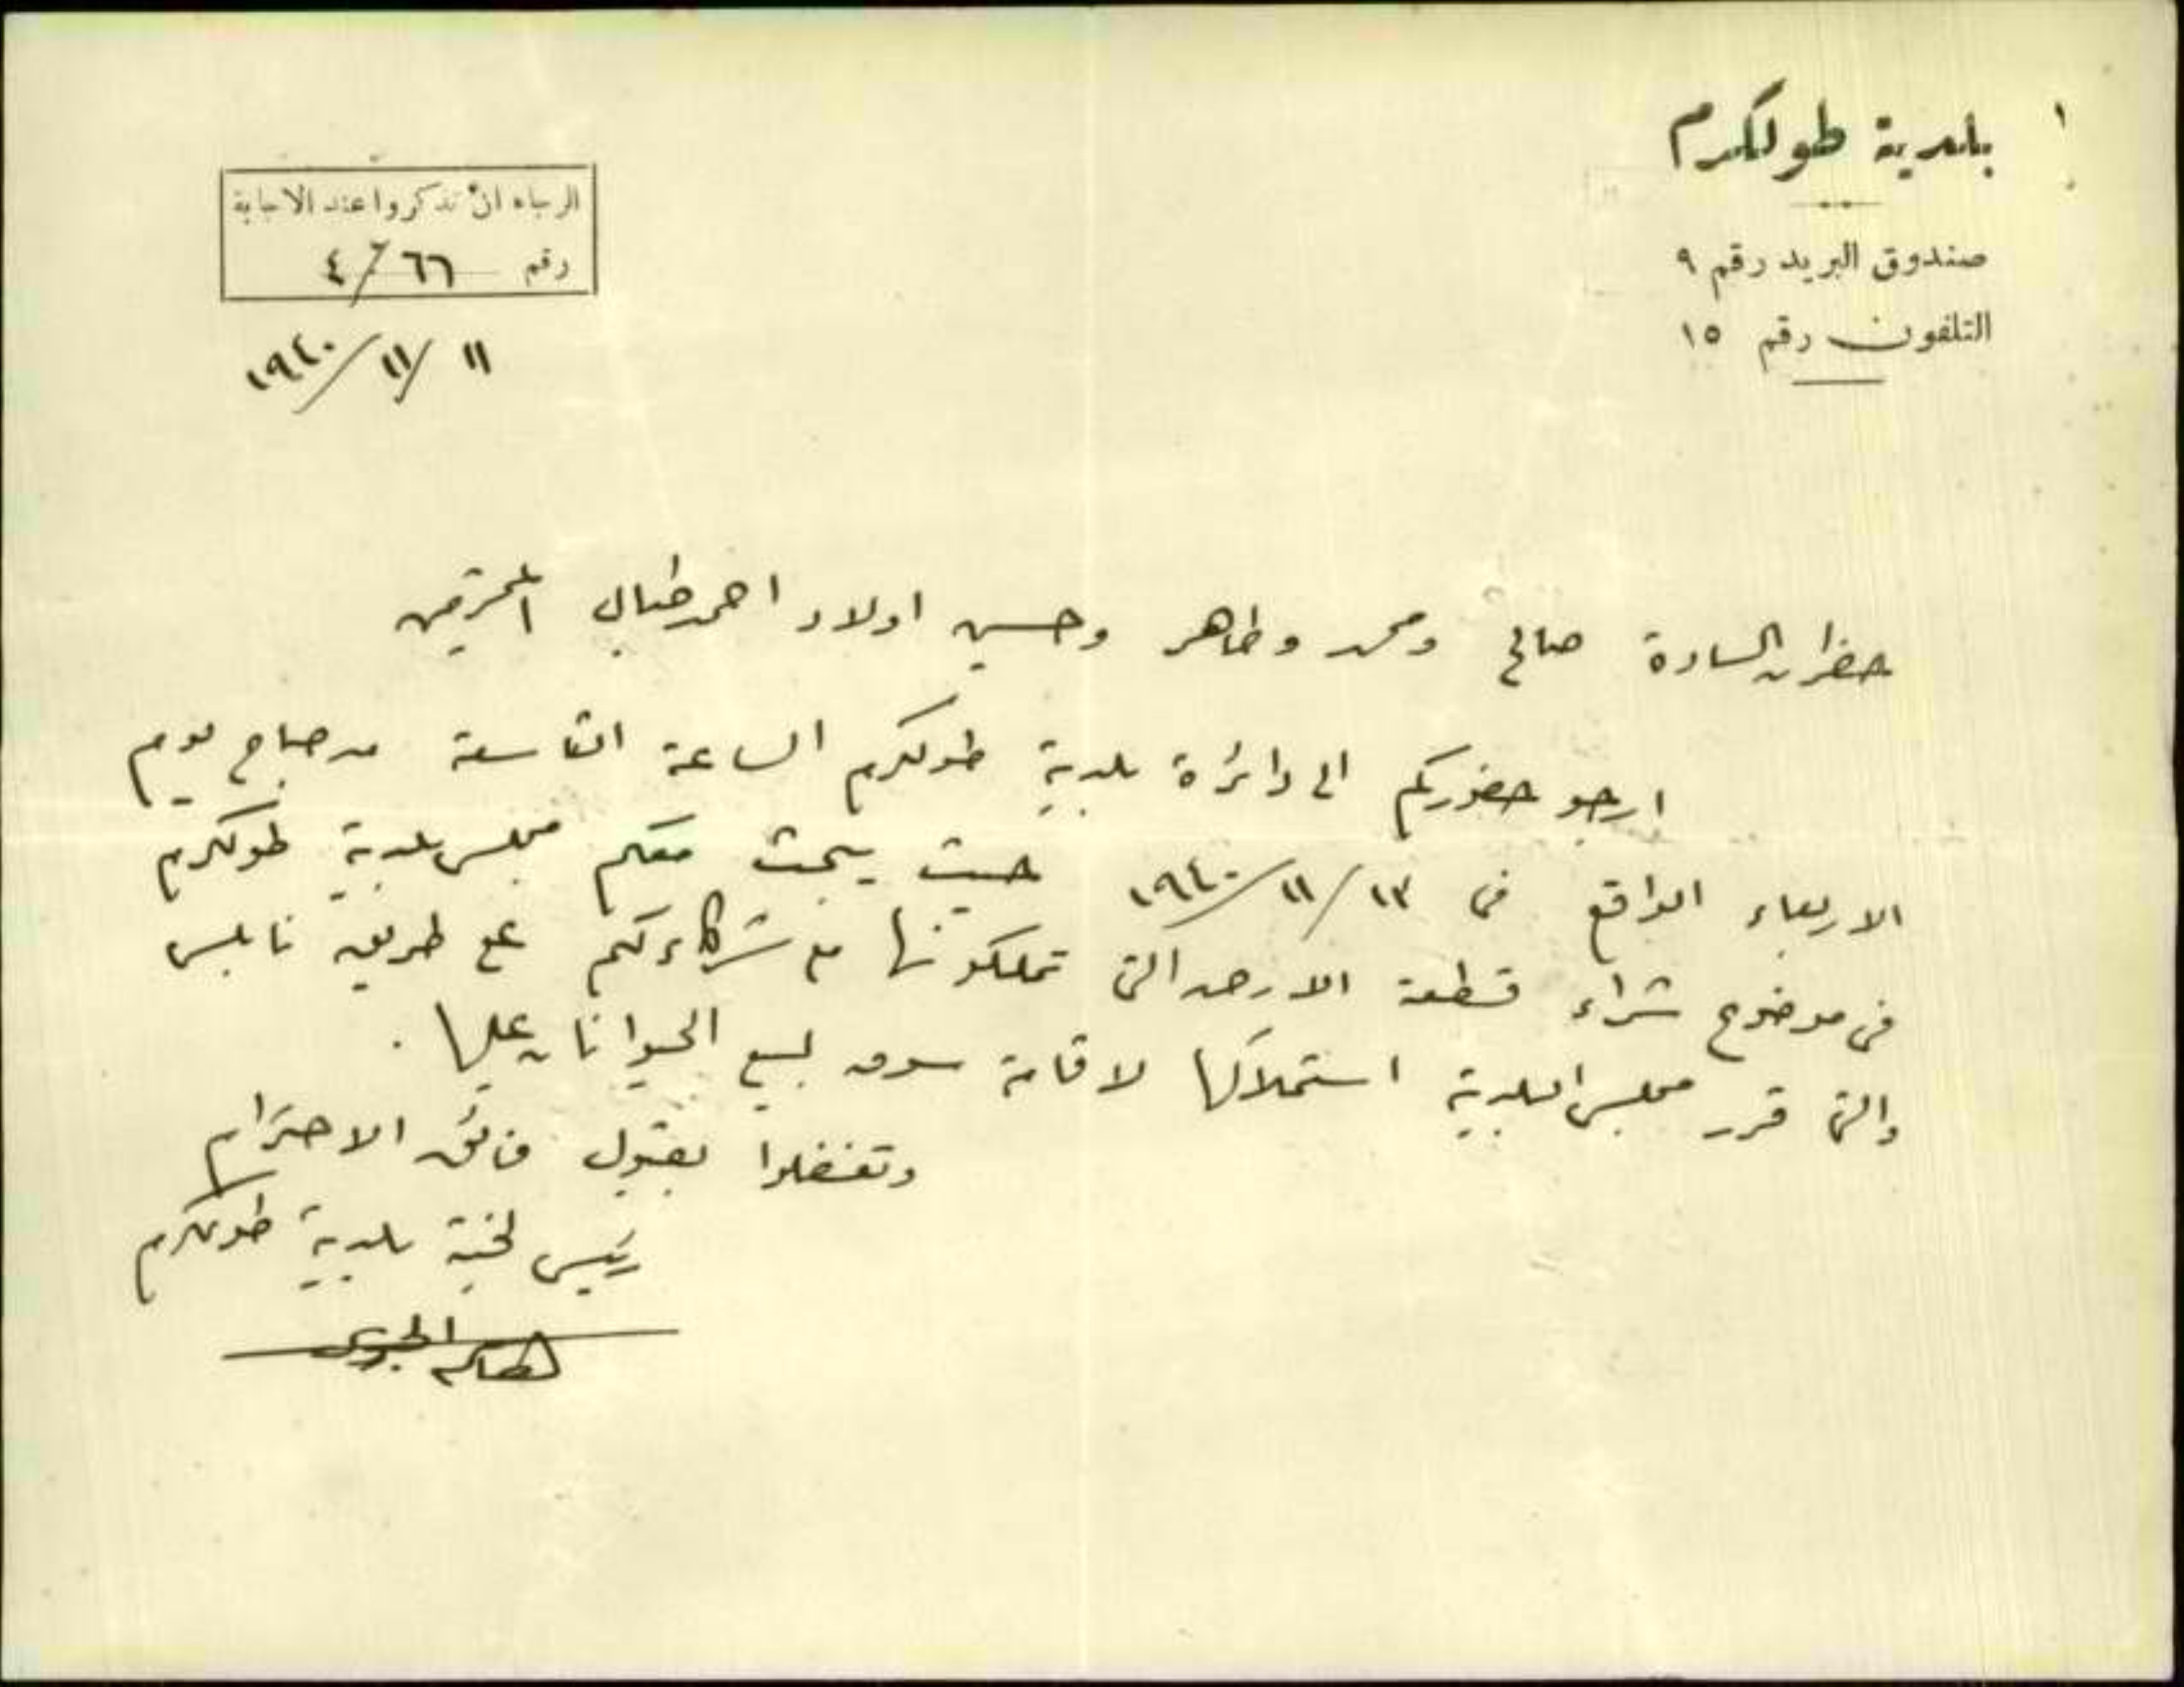 بلدية طولكرم
صندوق البريد رقم ٩
التلفون رقم ١٥
الرجاء ان تذكروا عند الاجابة
رقم ٦٦/٤
١١/١١/١٩٤٠
حضرات السادة صالح ومحمد وطاهر وحسين اولاد احمد المحترمين
ارجو حضوركم الى دائرة بلدية طولكرم الساعة التاسعة من صباح يوم
الاربعاء الواقع في ١٣/١١/١٩٤٠ حيث يبحث معكم مجلس بلدية طولكرم
في موضوع شراء قطعة الارض التي تملكونها مع شركاءكم على طريق نابلس
والتي قرر مجلس البلدية استملاكها لاقامة سوق لبيع الحيوانات عليها .
وتفضلوا بقبول فائق الاحترام
رئيس لجنة بلدية طولكرم